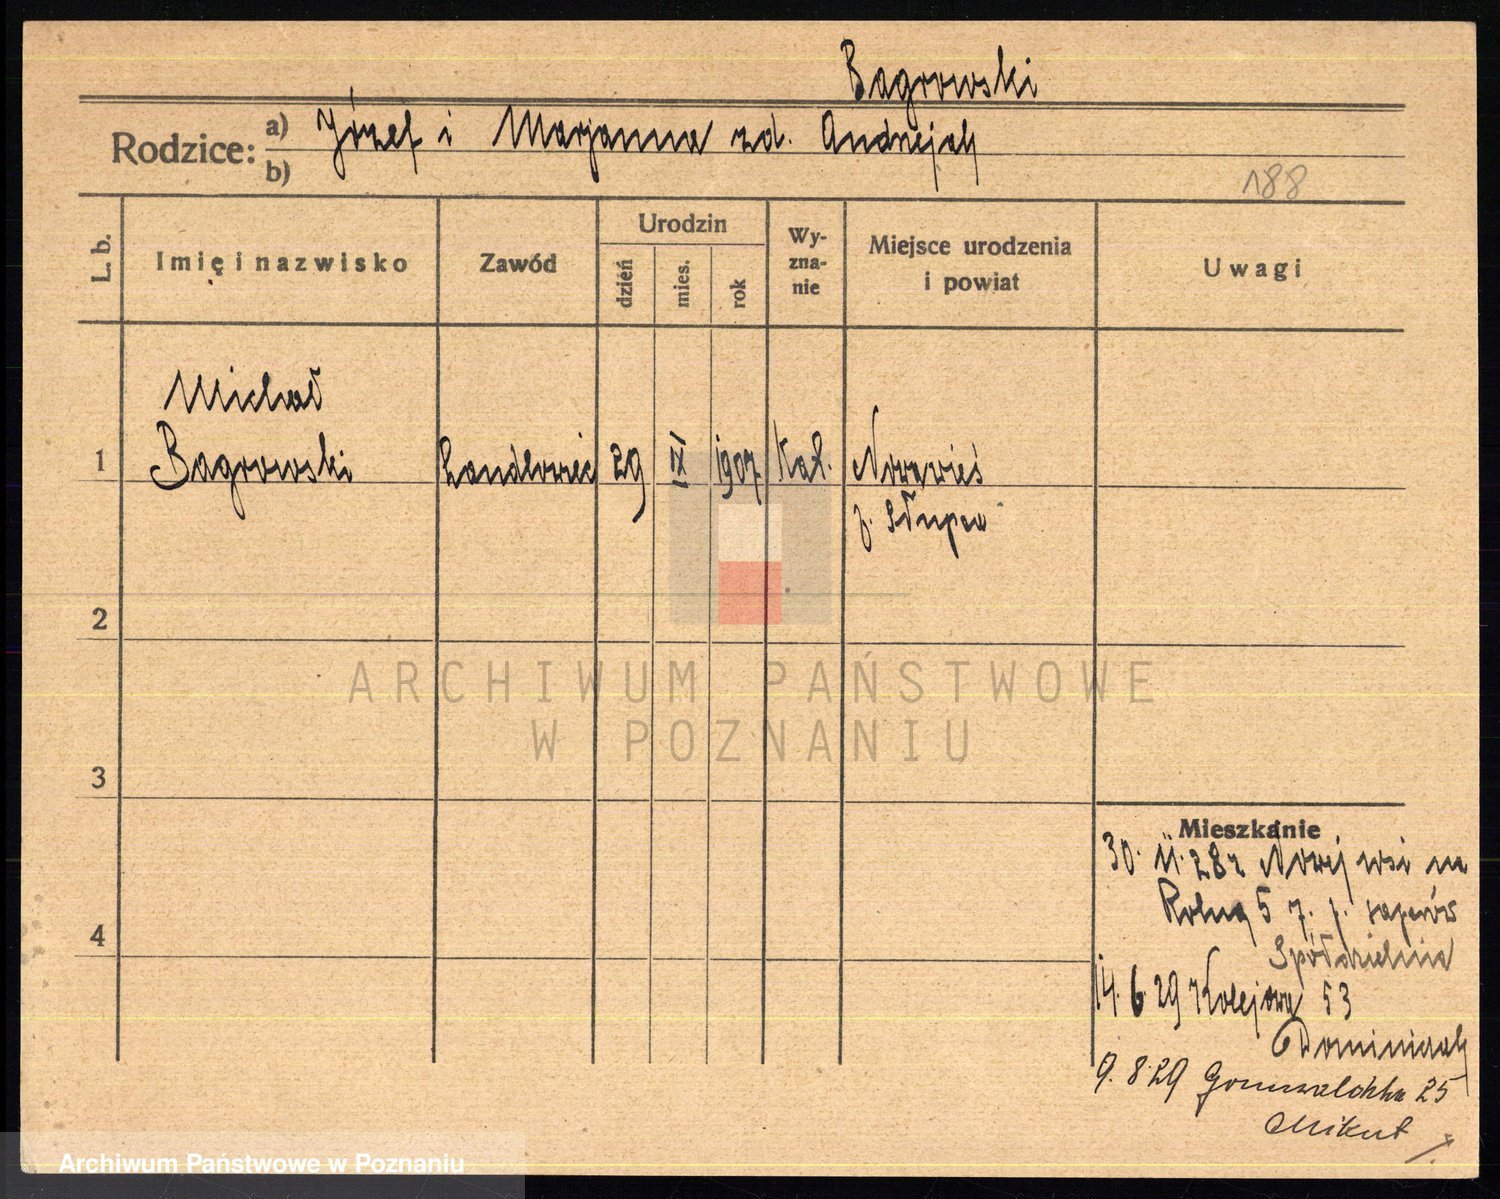 Bagrowski
Rodzice: a) Józef i Marjanna zd. Andrzejak
b)
188
L. b.
Imię i nazwisko
Zawód
Urodzin
dzień
mies.
rok
Wy-
zna-
nie
Miejsce urodzenia
i powiat
Uwagi
Michał
1 Bagrowski handlowiec 29 IX 1907 Kat. Nowawieś
p. Słupca
2
3
4
Mieszkanie
30. 11. 28 z Nowej wsi na
Rolną 5
Spółdzielnia
14. 6. 29 Kolejowa 53
Dominiak
9. 8. 29 Grunwaldzka 25
Mikut
ARCHIWUM PAŃSTWOWE
W POZNANIU
Archiwum Państwowe w Poznaniu